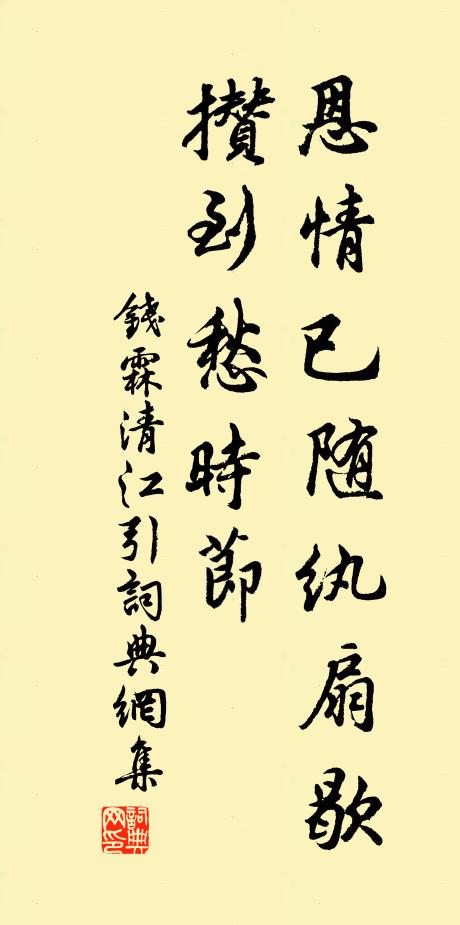 恩情已随纨扇歇
攢到愁時節
錢霖清江引詞典網集
詞典网印